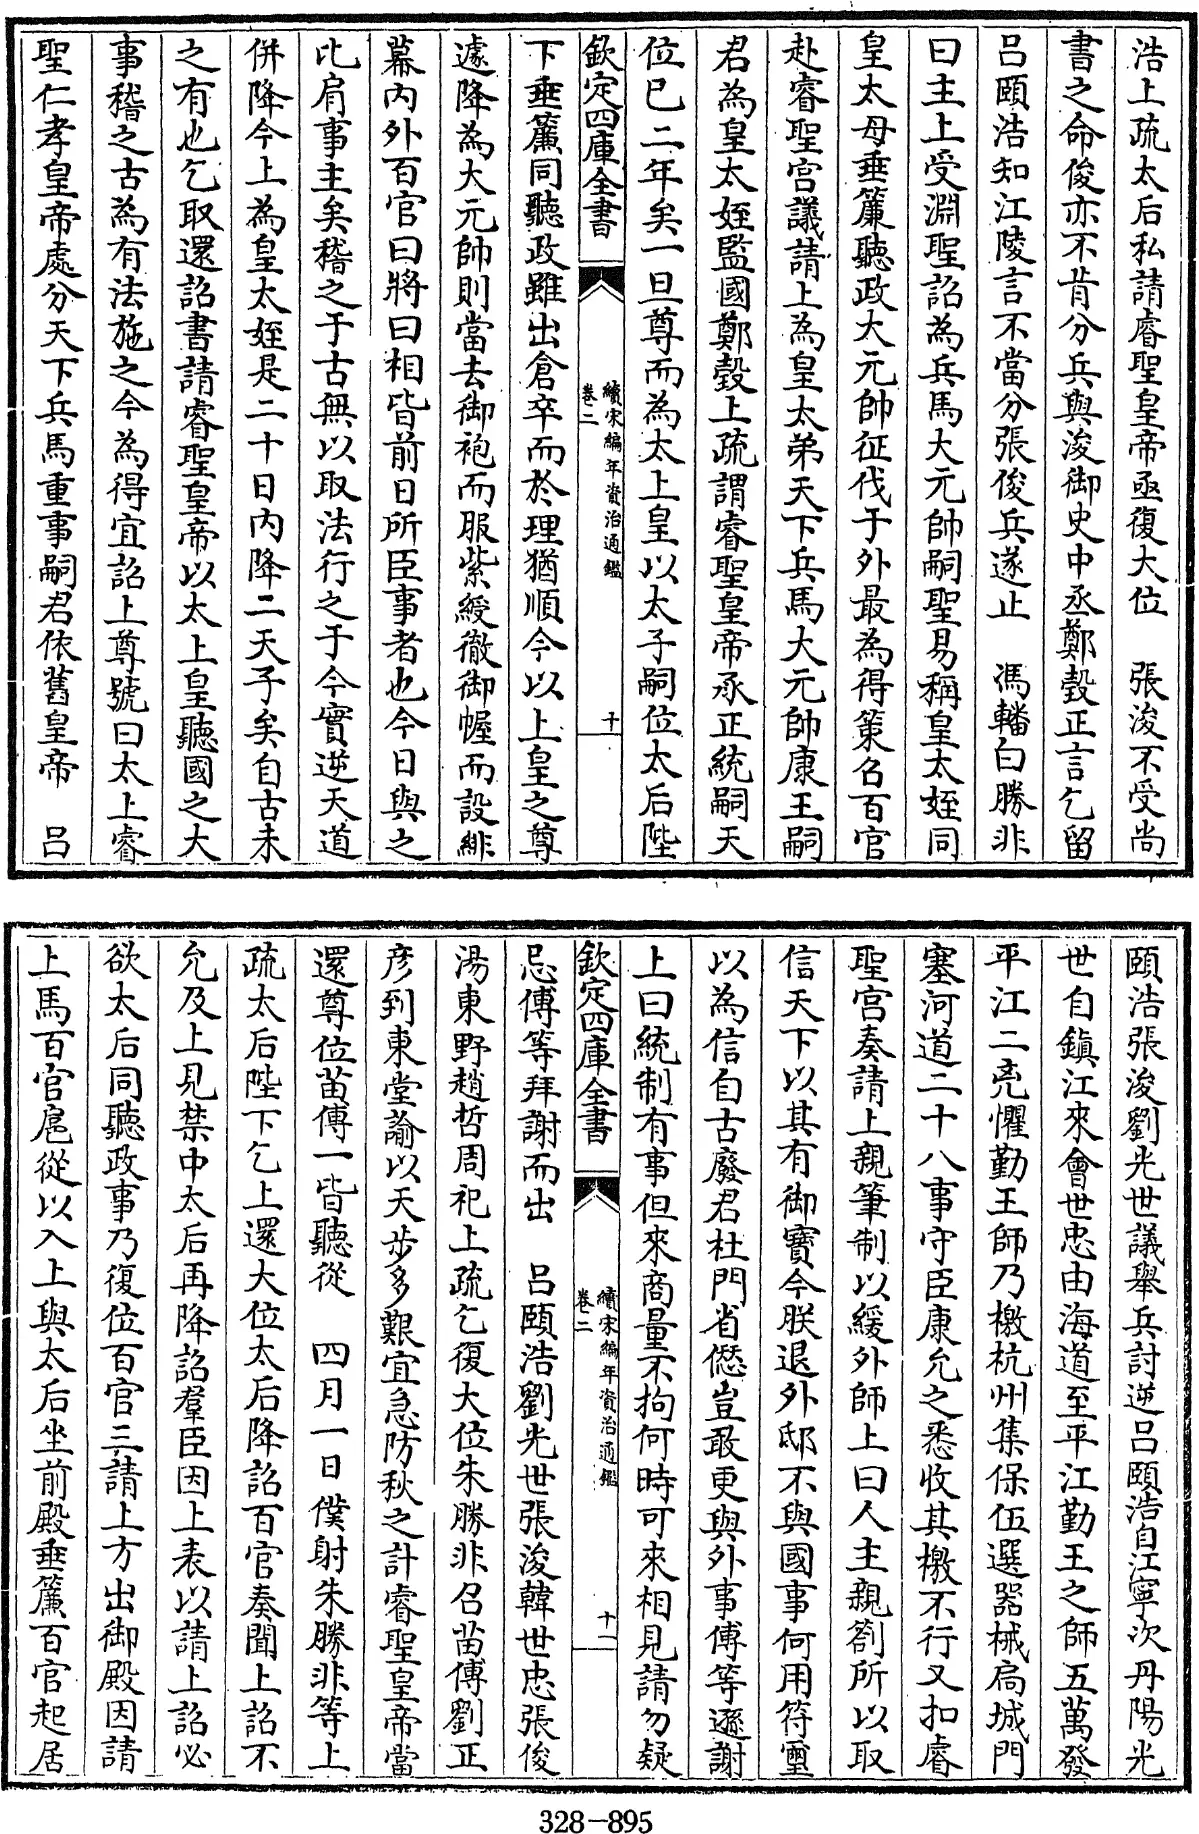 浩上疏太后私請睿聖皇帝亟復大位　張浚不受尚
書之命俊亦不肯分兵與浚御史中丞鄭瑴正言乞留
呂頤浩知江陵言不當分張俊兵遂止　馮轓白勝非
曰主上受淵聖詔為兵馬大元帥嗣聖易稱皇太姪同
皇太母垂簾聽政大元帥征伐于外最為得策召百官
赴睿聖宮議請上為皇太弟天下兵馬大元帥康王嗣
君為皇太姪監國鄭瑴上疏謂睿聖皇帝承正統嗣天
位已二年矣一旦尊而為太上皇以太子嗣位太后陛
欽定四庫全書
續宋編年資治通鑑
卷二
十
下垂簾同聽政雖出倉卒而於理猶順今以上皇之尊
遽降為大元帥則當去御袍而服紫綬徹御幄而設緋
幕内外百官曰將曰相皆前日所臣事者也今日與之
比肩事主矣稽之于古無以取法行之于今實逆天道
併降今上為皇太姪是二十日内降二天子矣自古未
之有也乞取還詔書請睿聖皇帝以太上皇聽國之大
事稽之古為有法施之今為得宜詔上尊號曰太上睿
聖仁孝皇帝處分天下兵馬重事嗣君依舊皇帝　呂
頤浩張浚劉光世議舉兵討逆呂頤浩自江寧次丹陽光
世自鎮江來會世忠由海道至平江勤王之師五萬發
平江二兇懼勤王師乃檄杭州集保伍選器械扃城門
塞河道二十八事守臣康允之悉收其檄不行又扣睿
聖宮奏請上親筆制以緩外師上曰人主親劄所以取
信天下以其有御寶今朕退外邸不與國事何用符璽
以為信自古廢君杜門省愆豈敢更與外事傅等遜謝
上曰統制有事但來商量不拘何時可來相見請勿疑
欽定四庫全書
續宋編年資治通鑑
卷二
十一
忌傅等拜謝而出　呂頤浩劉光世張浚韓世忠張俊
湯東野趙哲周杞上疏乞復大位朱勝非召苗傅劉正
彦到東堂諭以天步多艱宜急防秋之計睿聖皇帝當
還尊位苗傅一皆聽從　四月一日僕射朱勝非等上
疏太后陛下乞上還大位太后降詔百官奏聞上詔不
允及上見禁中太后再降詔羣臣因上表以請上詔必
欲太后同聽政事乃復位百官三請上方出御殿因請
上馬百官扈從以入上與太后坐前殿垂簾百官起居
328-895